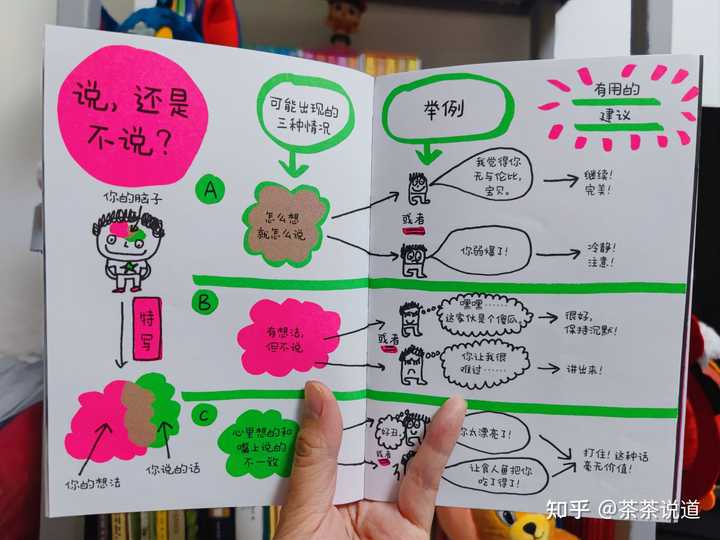 说，还是
不说？
你的脑子
特
写
你的想法
你说的话
可能出现的
三种情况
A
怎么想
就怎么说
B
有想法，
但不说
C
心里想的和
嘴上说的
不一致
举例
有用的
建议
我觉得你
无与伦比，
宝贝。
继续！
完美！
或者
你弱爆了！
冷静！
注意！
嘿嘿……
这家伙是个傻瓜。
很好，
保持沉默！
或者
你让我很
难过……
讲出来！
好丑
你太漂亮了！
或者
让食人鱼把你
吃了得了！
打住！这种话
毫无价值！
知乎 @茶茶说道